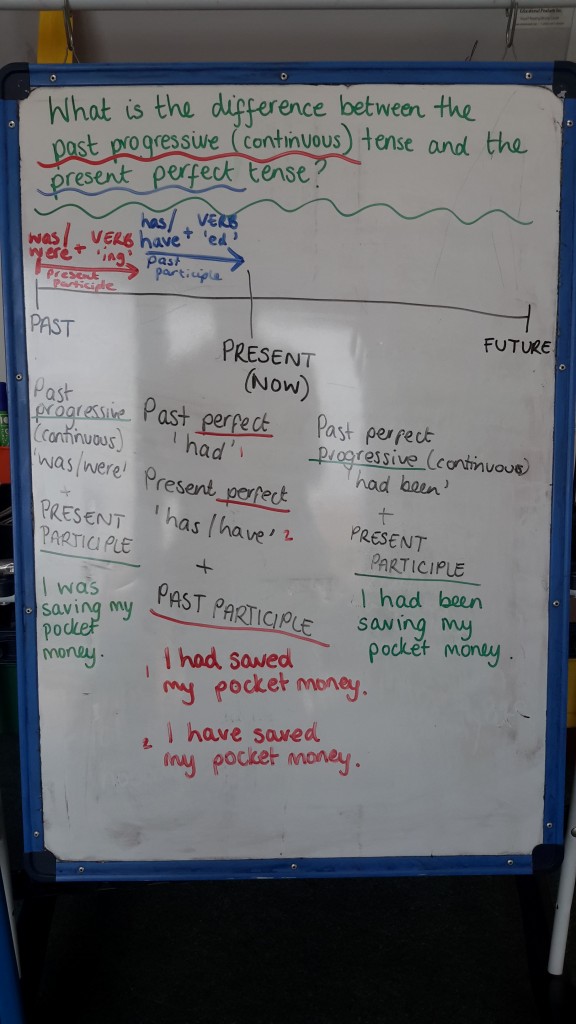 What is the difference between the
past progressive (continuous) tense and the
present perfect tense?
was/ were + VERB 'ing'
present participle
has/ have + VERB 'ed'
past participle
PAST
PRESENT
(NOW)
FUTURE
Past
progressive
(continuous)
'was/were'
+
PRESENT
PARTICIPLE
I was
saving my
pocket
money.
Past perfect
'had' 1
Present perfect
'has/have' 2
+
PAST PARTICIPLE
1 I had saved
my pocket money.
2 I have saved
my pocket money.
Past perfect
progressive (continuous)
'had been'
+
PRESENT
PARTICIPLE
I had been
saving my
pocket money.